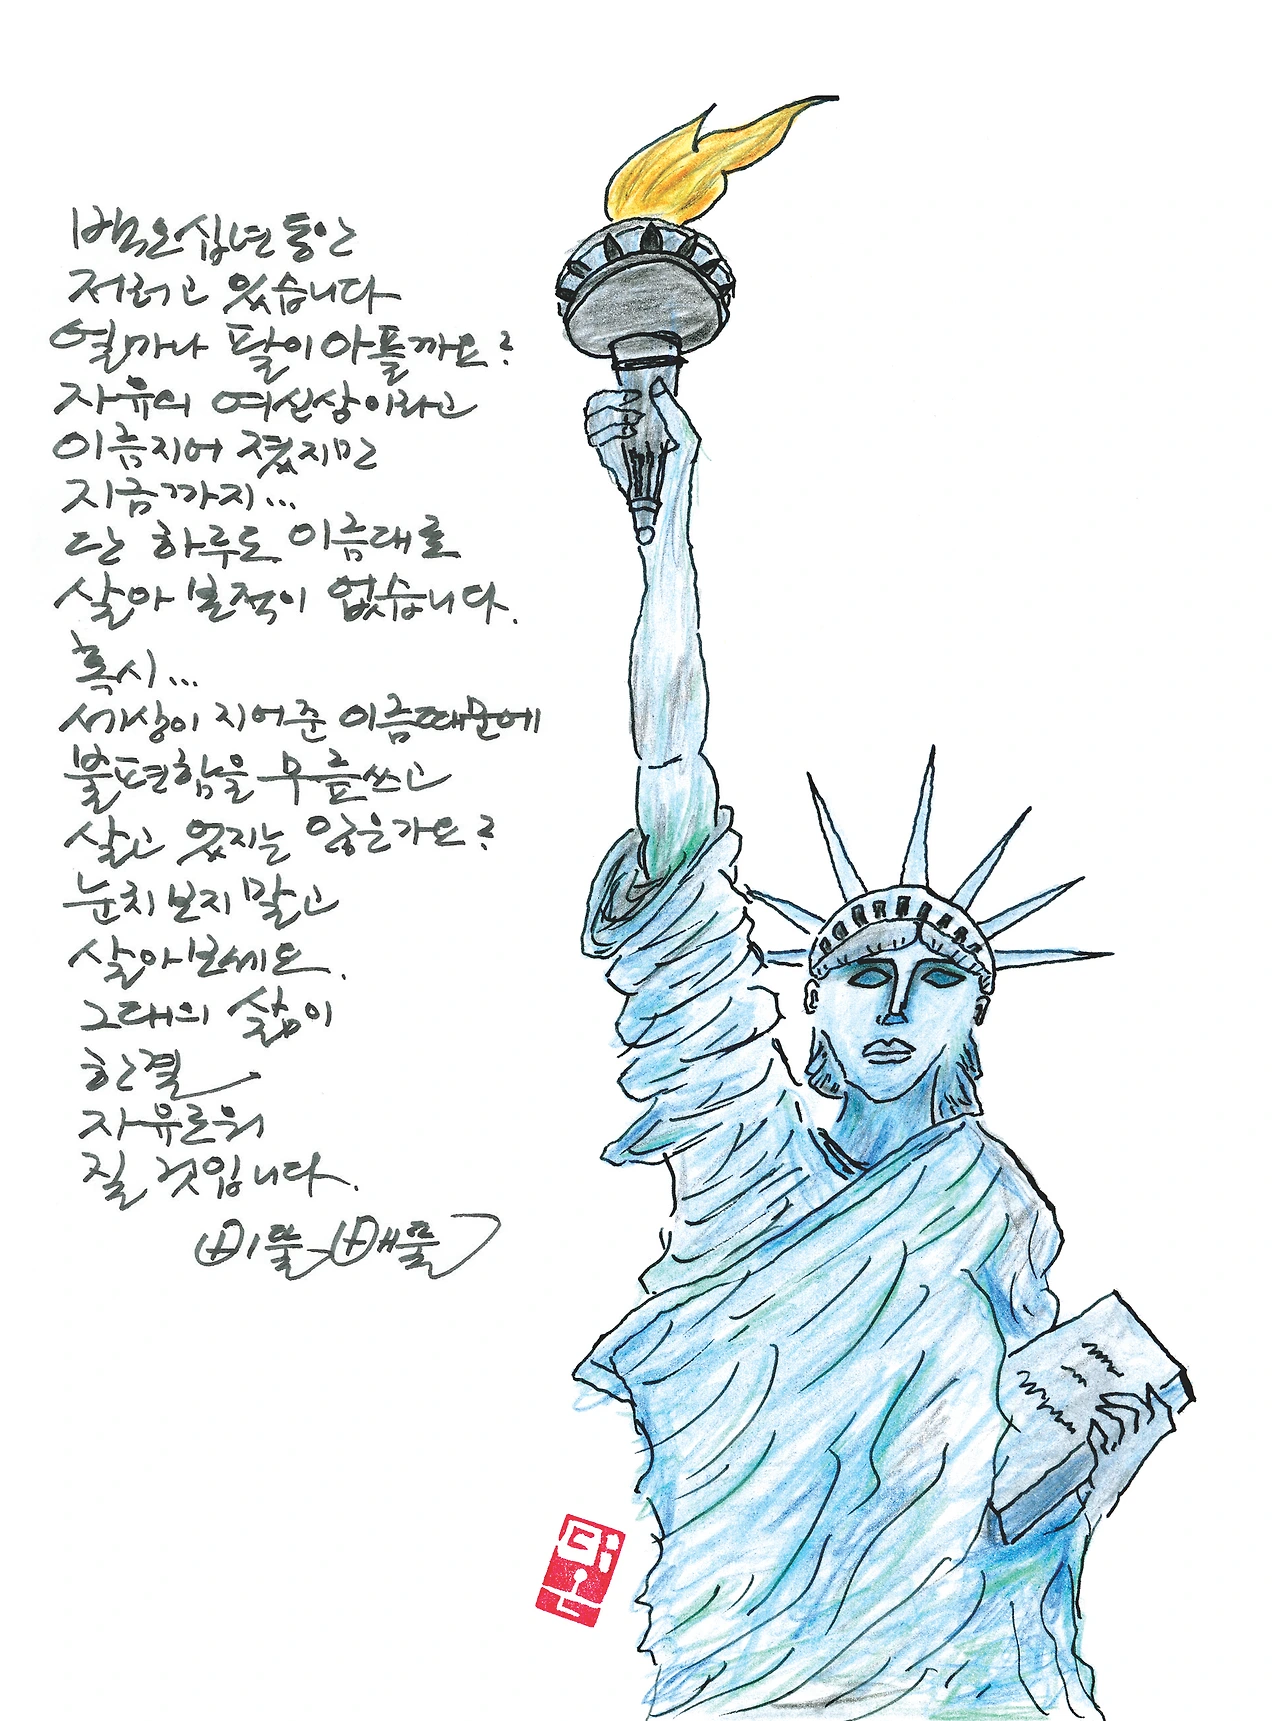 백오십년 동안
저러고 있습니다
얼마나 팔이 아플까요?
자유의 여신상이라고
이름지어 졌지만
지금까지...
단 하루도 이름대로
살아 본적이 없습니다.
혹시...
세상이 지어준 이름때문에
불편함을 무릅쓰고
살고 있지는 않은가요?
눈치 보지 말고
살아보세요.
그대의 삶이
한결
자유로워
질 것입니다.